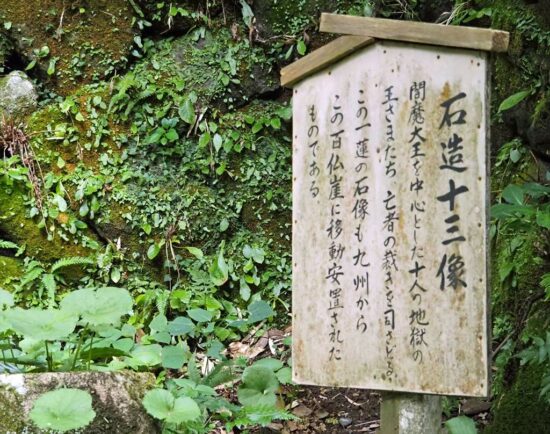 石造十三像
閻魔大王を中心とした十人の地獄の
王さまたち 亡者の裁きを司さどる。
この一蓮の石像も九州から
この百仏崖に移動安置された
ものである